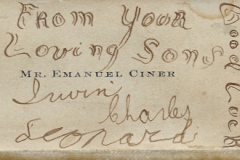 From Your
Loving Sons
MR. EMANUEL CINER
Irwin
Charles
Leonard
Good Luck